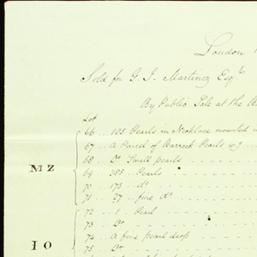 London
Sold for G. J. Martinez Esqr.
By Public Sale at the
Lot
66 .. 105 Pearls in Necklace mounted
67 .. A Parcel of Barrock Pearls
68 .. Do. Small pearls
69 .. Pearls
70 .. 173 do.
71 .. 27 fine do.
72 .. 1 Pearl
73 .. Do.
74 .. A fine pearl drop
75 .. Do.
M Z
I O